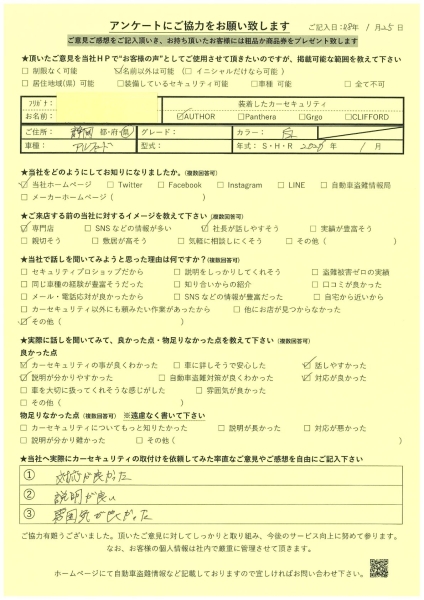 アンケートにご協力をお願い致します
ご記入日:R8年 1月25日
ご意見ご感想をご記入頂いき、お持ち頂いたお客様には粗品か商品券をプレゼント致します
★頂いたご意見を当社HPで"お客様の声"としてご使用させて頂きたいのですが、掲載可能な範囲を教えて下さい
□ 制限なく可能 ☑名前以外は可能 (□ イニシャルだけなら可能)
□ 居住地域(県)可能 □装備しているセキュリティ可能 □車種 可能 □ 全て不可
フリガナ: 装着したカーセキュリティ
お名前: ☑AUTHOR □Panthera □Grgo □CLIFFORD
ご住所: 静岡 都・府・県 グレード: カラー: 白
車種: アルファード 型式: 年式:S・H・R 2025年 1月
★当社をどのようにしてお知りになりましたか。(複数回答可)
☑ 当社ホームページ □ Twitter □ Facebook □ Instagram □ LINE □ 自動車盗難情報局
□ メーカーホームページ( )
★ご来店する前の当社に対するイメージを教えて下さい(複数回答可)
☑ 専門店 □ SNSなどの情報が多い ☑ 社長が話しやすそう □ 実績が豊富そう
□ 親切そう □ 敷居が高そう □ 気軽に相談しにくそう □ その他( )
★当社で話しを聞いてみようと思った理由は何ですか?(複数回答可)
□ セキュリティプロショップだから □ 説明をしっかりしてくれそう □ 盗難被害ゼロの実績
□ 同じ車種の経験が豊富そうだった □ 知り合いからの紹介 □ 口コミが良かった
□ メール・電話応対が良かったから □ SNSなどの情報が豊富だった □ 自宅から近いから
□ カーセキュリティ以外にも頼みたい作業があったから □ 他にお店が見つからなかった
☑ その他( )
★実際に話しを聞いてみて、良かった点・物足りなかった点を教えて下さい(複数回答可)
良かった点
☑ カーセキュリティの事が良くわかった □ 車に詳しそうで安心した ☑ 話しやすかった
☑ 説明が分かりやすかった □ 自動車盗難対策が良くわかった ☑ 対応が良かった
□ 車を大切に扱ってくれそうな感じがした □ 雰囲気が良かった
□ その他( )
物足りなかった点(複数回答可) ※遠慮なく書いて下さい
□ カーセキュリティについてもっと知りたかった □ 説明が長かった □ 対応が悪かった
□ 説明が分かり難かった □ その他( )
★当社へ実際にカーセキュリティの取付けを依頼してみた率直なご意見やご感想を自由にご記入下さい
① 対応が良かった
② 説明が良い
③ 雰囲気が良くなった
ご協力有難うございました。頂いたご意見に対してしっかりと取り組み、今後のサービス向上に努めて参ります。
なお、お客様の個人情報は社内で厳重に管理させて頂きます。
ホームページにて自動車盗難情報など記載しておりますので宜しければお問い合わせ下さい。